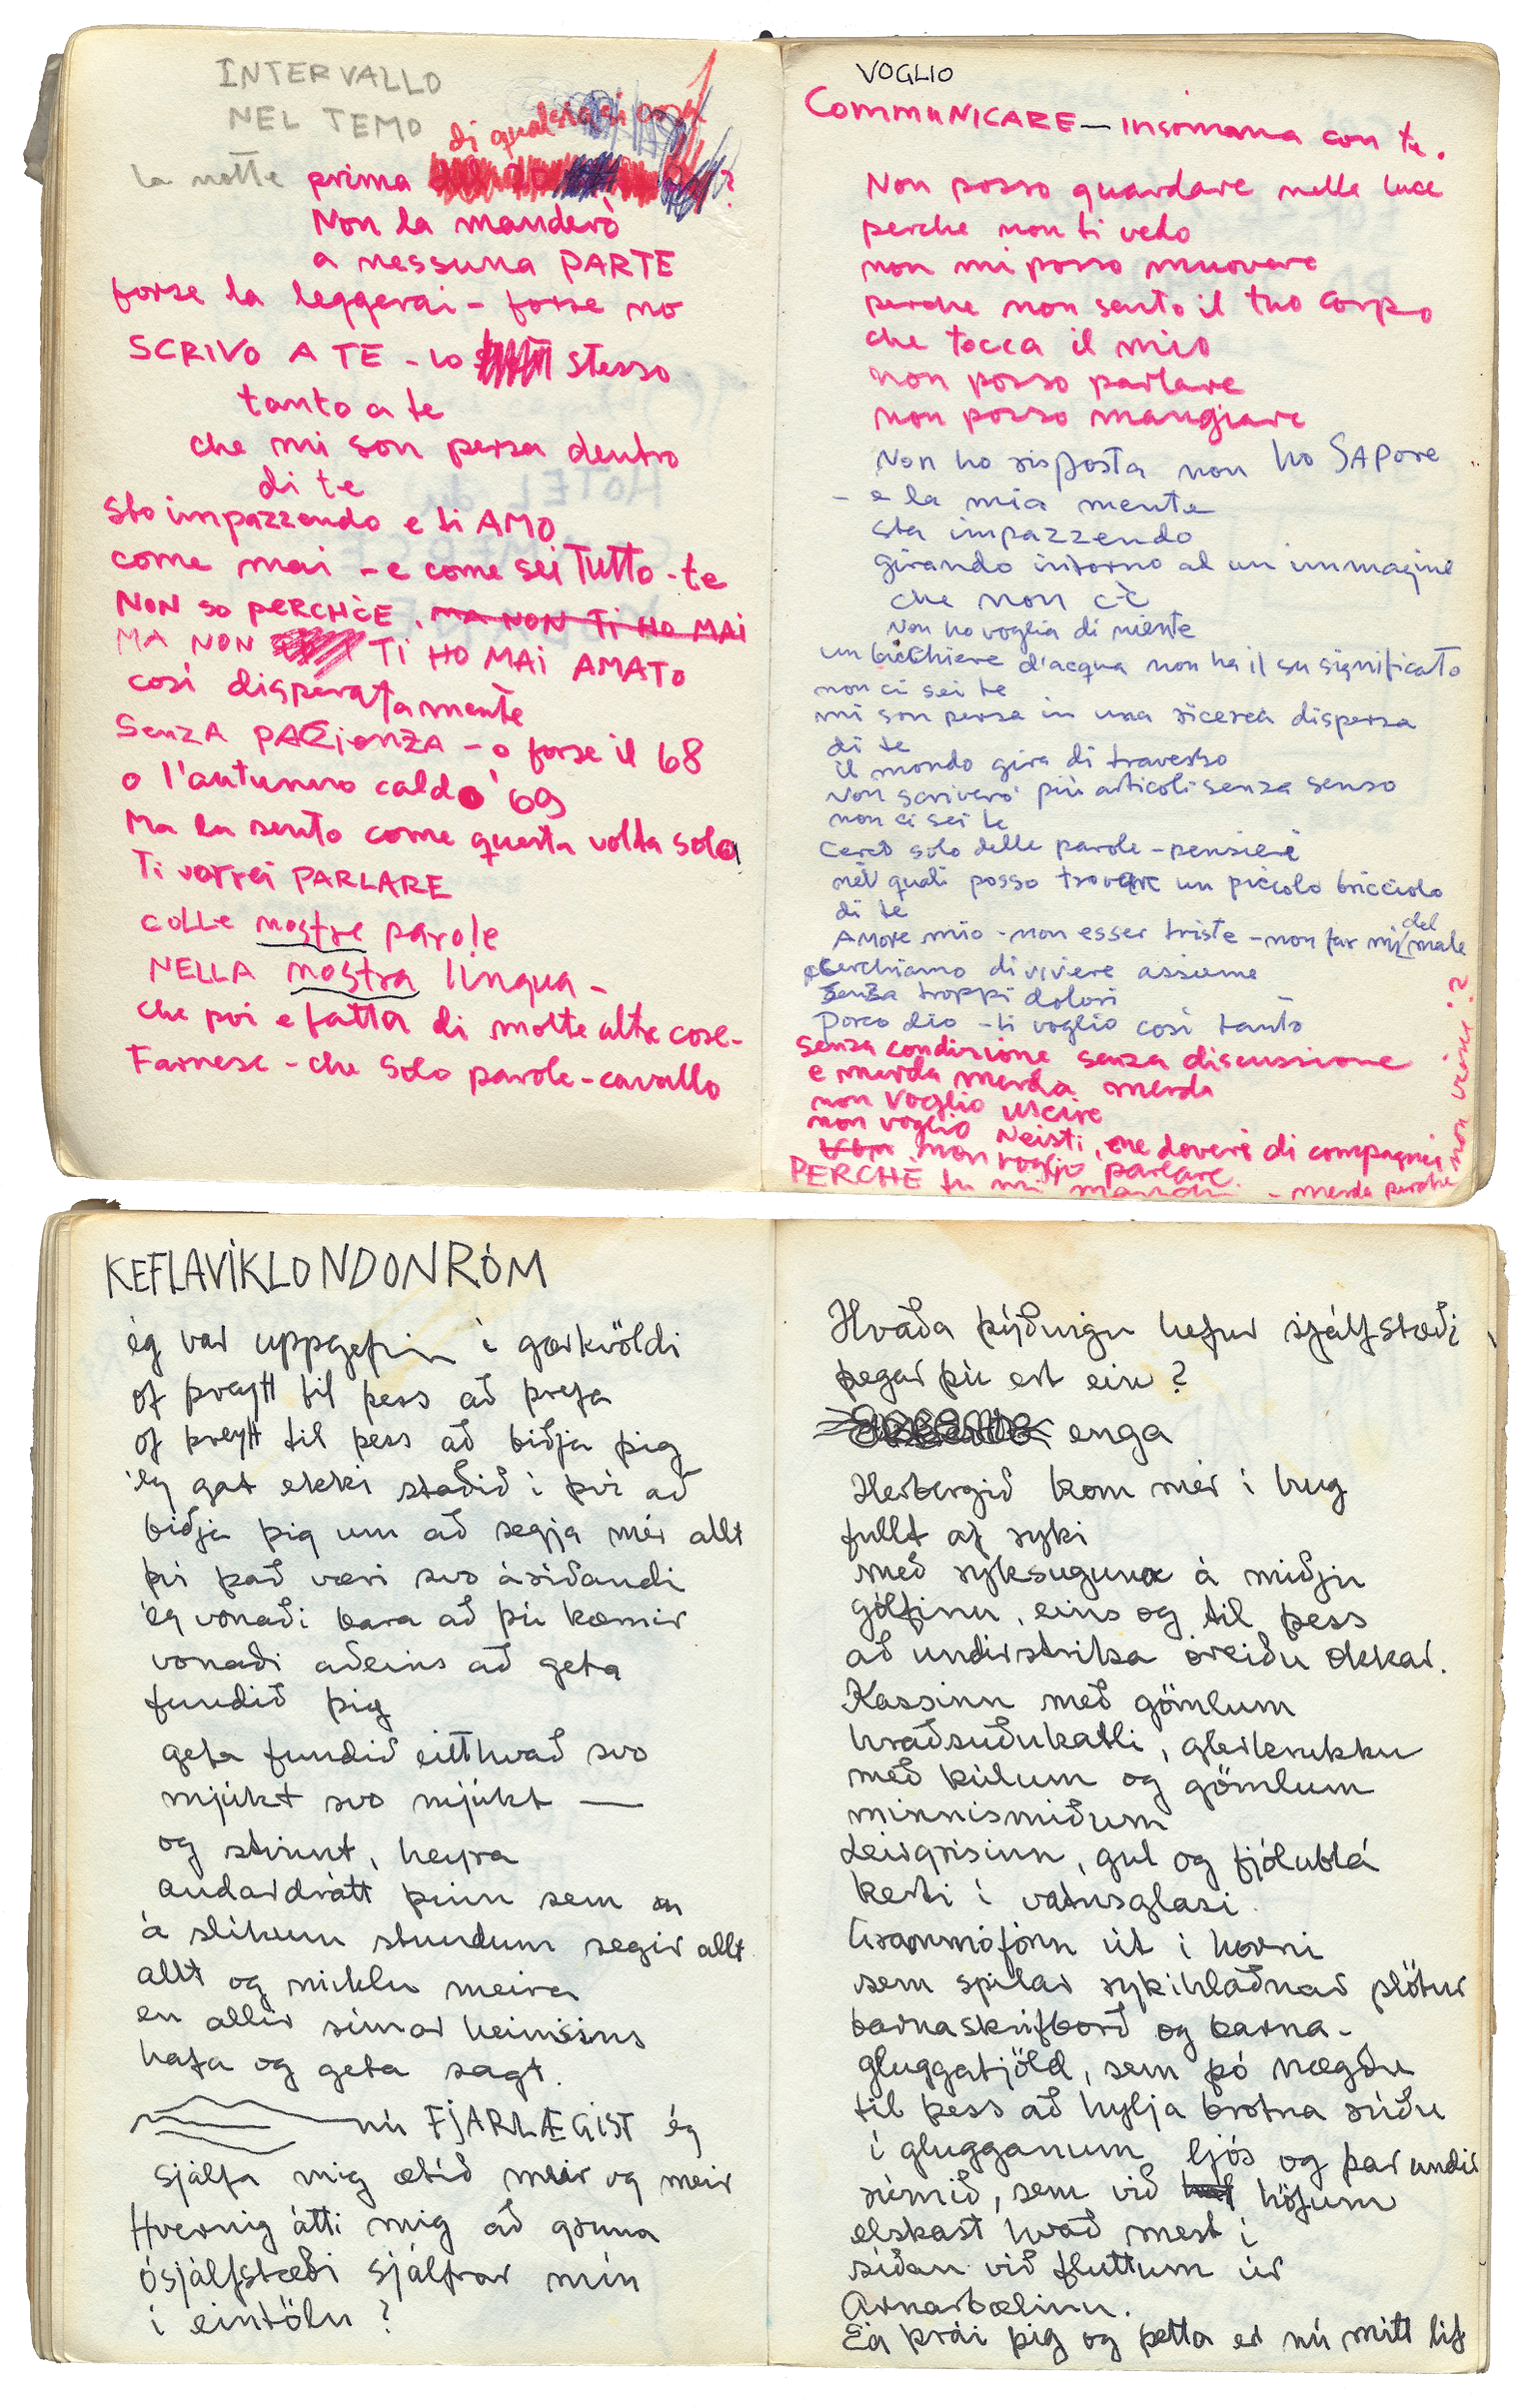 INTERVALLO
NEL TEMO
di qualsiasi cosa
la notte prima ?
Non la manderò
a nessuna PARTE
forse la leggerai - forse no
SCRIVO A TE - lo stesso
tanto a te
che mi son persa dentro
di te
sto impazzendo e ti AMO
come mai - e come sei TUTTO - te
NON so PERCHÈE. MA NON Ti HO MAi
MA NON Ti HO MAi AMATO
così disperatamente
SenzA PAZienZA - o forse il 68
o l'autunno caldo '69
Ma la sento come questa volta sola
Ti vorrei PARLARE
colle nostre parole
NELLA nostra lingua -
che poi e fatta di molte altre cose -
Farnese - che solo parole - cavallo
VOGLIO
CommUNICARE - insomma con te.
Non posso guardare nelle luce
perche non ti vedo
non mi posso muovere
perche non sento il tuo corpo
che tocca il mio
non posso parlare
non posso mangiare
Non ho risposta non ho SAPore
- e la mia mente
sta impazzendo
girando intorno al un immagine
che non c'è
Non ho voglia di niente
un bicchiere d'acqua non ha il su significato
non ci sei te
mi son persa in una ricerca dispersa
di te
il mondo gira di traverso
Non scrivero' più articoli senza senso
non ci sei te
Cerco solo delle parole - pensieri
nei quali posso trovare un piccolo bricciolo
di te
AMore mio - non esser triste - non far mi del male
cerchiamo di vivere assieme
Senza troppi dolori
Porco dio - ti voglio così tanto
senza condizione senza discussione
e merda merda merda
non voglio uscire
non voglio Neisti, ne doveri di compagnei
non voglio parlare.
PERCHÈ tu mi manchi - merda perche
non vieni?
KEFLAVÍKLONDONRÓM
ég var uppgefin í gærkvöldi
of þreytt til þess að þrefa
of þreytt til þess að biðja þig
ég gat ekki staðið í því að
biðja þig um að segja mér allt
þó það væri svo áríðandi
ég vonaði bara að þú kæmir
vonaði aðeins að geta
fundið þig
geta fundið eitthvað svo
mjúkt svo mjúkt —
og stinnt, heyra
andardrátt þinn sem
á slíkum stundum segir allt
allt og miklu meira
en allir símar heimsins
hafa og geta sagt.
nú FjARLÆGiST ég
sjálfa mig ætíð meir og meir
Hvernig átti mig að gruna
ósjálfstæði sjálfrar mín
í eintölu?
Hvaða þýðingu hefur sjálfstæði
þegar þú ert ein?
enga
Herbergið kom mér í hug
fullt af ryki
með ryksuguna á miðju
gólfinu, eins og til þess
að undirstrika óreiðu okkar.
Kassinn með gömlum
hraðsuðukatli, glerkrukku
með kúlum og gömlum
minnismiðum
Leirgrísinn, gul og fjólublá
kerti í vatnsglasi.
Grammófónn út í horni
sem spilar rykihlaðnar plötur
barnaskrifborð og barna-
gluggatjöld, sem þó nægðu
til þess að hylja brotna rúðu
í glugganum ljós og þar undir
rúmið, sem við höfum
elskast hvað mest í
síðan við fluttum úr
Arnarbælinu.
Ég þrái þig og þetta er nú mitt líf